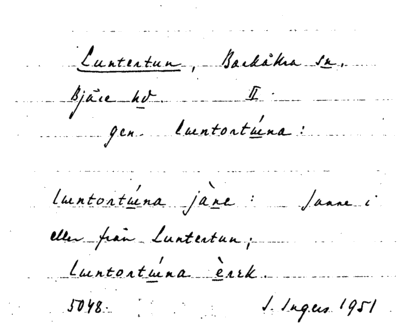 Luntertun, Barkåkra sn.
Bjäre hd II.
gen. luntortúna:
luntortúna jàne: Janne i
eller från Luntertun;
luntortúna èrek.
5048. I. Ingers 1951